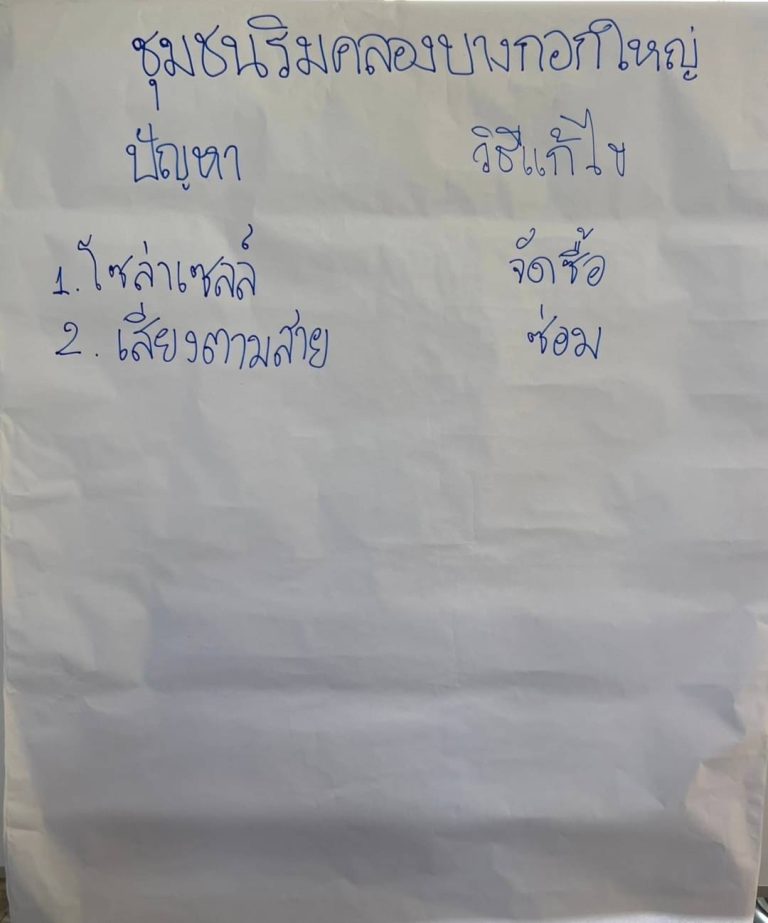 ชุมชนริมคลองบางกอกใหญ่
ปัญหา วิธีแก้ไข
1. โซล่าเซลล์ จัดซื้อ
2. เสียงตามสาย ซ่อม